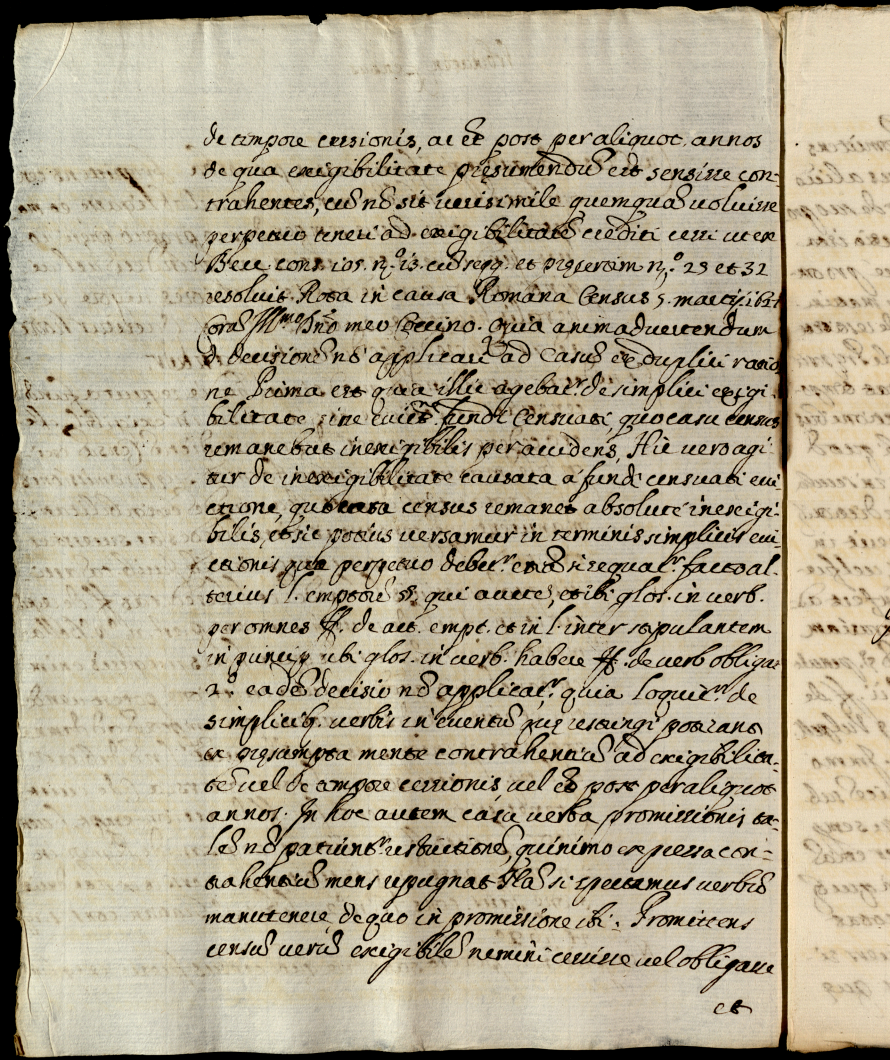 de tempore cessionis, ac et̃ post per aliquot annos
de qua exigibilitate pręsumendũ est sensisse con-
trahentes, cũ nõ sit uerisimile quemquã uoluisse
perpetuo teneri ad exigibilitatẽ crediti cessi ut ex
cons. 105. n.º 13. cũ seqq. et pręsertim n.º 29 et 32
resoluit Rota in causa Romana Census 5. martij
Corã Ill.mo Dño meo Coccino. Quia animaduertendum
decisionẽ nõ applicari ad Casũ ex duplici ratio
ne Prima est quia illic agebat.r de simplici exigi-
bilitate, sine euict.ne fundi Censuati, quo casu census
remanebat inexigibilis per accidens, Hic uero agi
tur de inexigibilitate causata á fundi censuati eui
ctione, quo casu census remanet absoluté inexigi-
bilis, et sic potius uersamur in terminis simplicis eui-
ctionis quę perpetuo debet.r etiã si sequat.r facto al-
terius l. emptorẽ §. qui autem, et ibi glos. in uerb.
per omnes ff. de act. empt. et in l. inter stipulantem
in princip. ubi glos. in uerb. habere ff. de uerb. obliga:
2.º eadẽ decisio nõ applicat.r quia loquit.r de
simplicib. uerbis in euentũ quę restringi poterant
ex pręsumpta mente contrahentiũ ad exigibilita-
tẽ uel de tempore cessionis, uel et̃ post per aliquot
annos. In hoc autem casu uerba promissionis ta-
lẽ nõ patiunt.r restrictionẽ, quinimo expressa con-
trahentiũ mens repugnat si spectamus uerbũ
manutenere, de quo in promissione ibi: Promittens
censũ uerũ exigibilẽ nemini cessisse uel obligasse
et